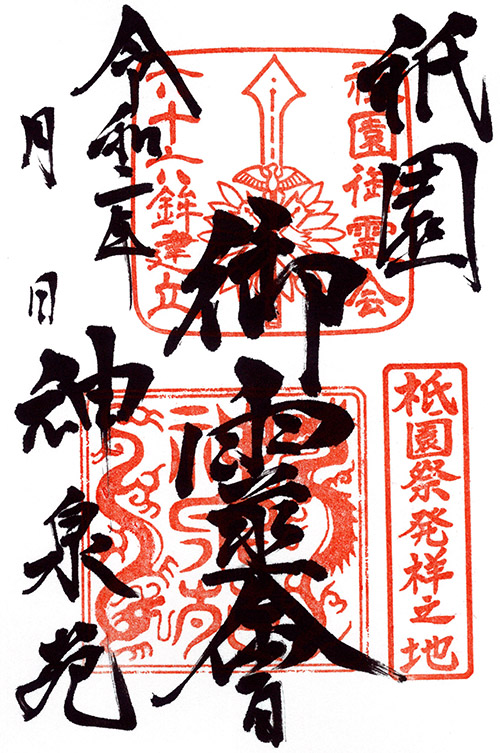 祇園
御靈會
令和二年
月
日
神泉苑
祇園御霊会
六十六鉾建立
祇園祭発祥之地